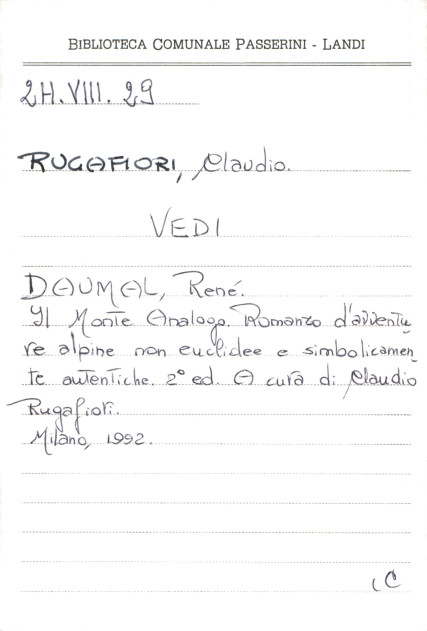 BIBLIOTECA COMUNALE PASSERINI - LANDI
2H.VIII.29
RUGAFIORI, Claudio.
VEDI
DAUMAL, René.
Il Monte Analogo. Romanzo d'avventu
re alpine non euclidee e simbolicamen
te autentiche. 2° ed. A cura di Claudio
Rugafiori.
Milano, 1992.
C